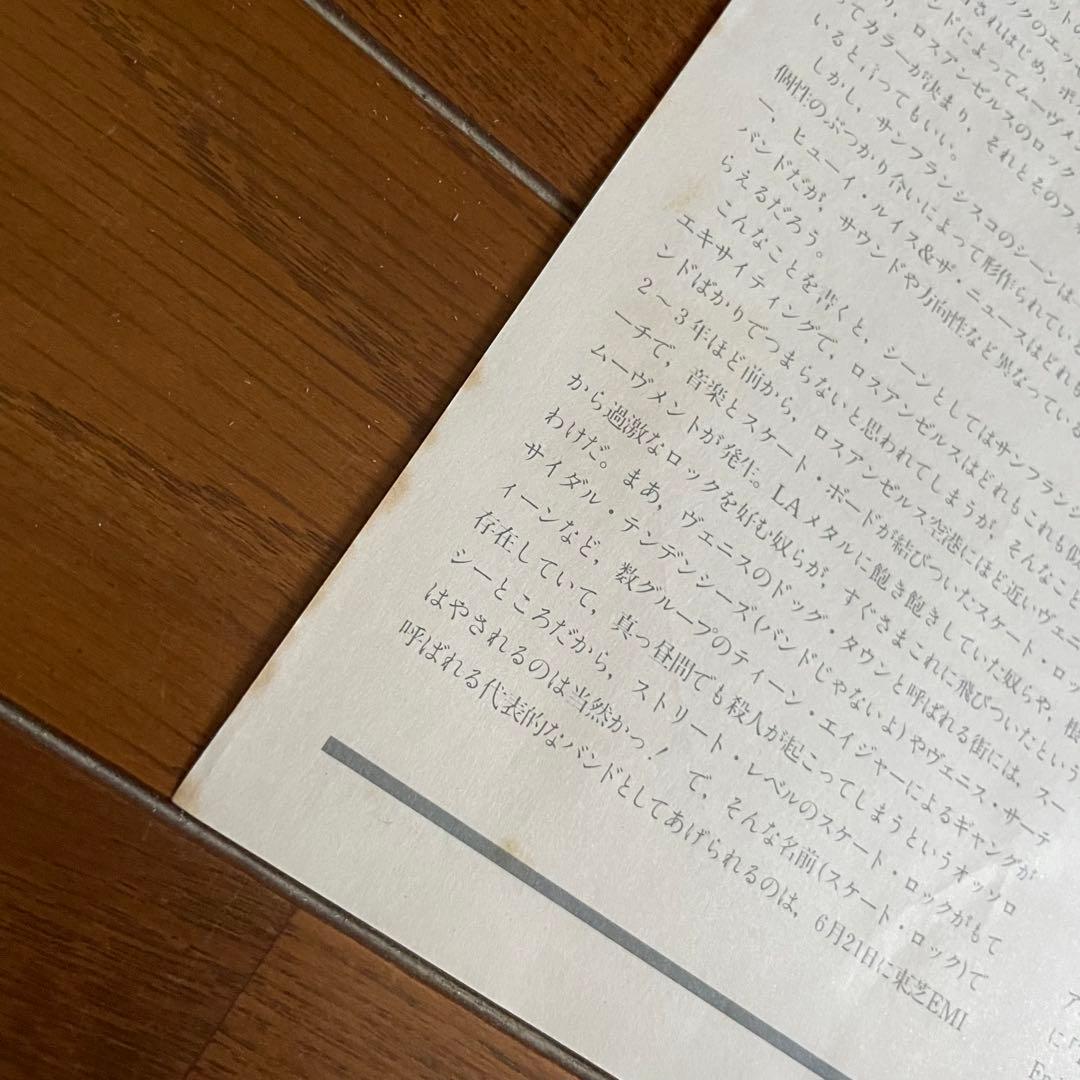 ットの
ックのエッセ
されはじめ、ボ
ンドによってムーヴメン
り、ロスアンゼルスのロック
ってカラーが決まり、それとそのフ
いると言ってもいい。
しかし、サンフランシスコのシーンは
個性のぶつかり合いによって形作られている
ー、ヒューイ・ルイス&ザ・ニュースはどれも
バンドだが、サウンドや方向性など異なっている
らえるだろう。
こんなことを書くと、シーンとしてはサンフランシ
エキサイティングで、ロスアンゼルスはどれもこれも似
ンドばかりでつまらないと思われてしまうが、そんなこと
2〜3年ほど前から、ロスアンゼルス空港にほど近いヴェニ
ーチで、音楽とスケート・ボードが結びついたスケート・ロッ
ムーヴメントが発生。LAメタルに飽き飽きしていた奴らや、根
から過激なロックを好む奴らが、すぐさまこれに飛びついたという
わけだ。まあ、ヴェニスのドッグ・タウンと呼ばれる街には、スー
サイダル・テンデンシーズ(バンドじゃないよ)やヴェニス・サーテ
ィーンなど、数グループのティーン・エイジャーによるギャングが
存在していて、真っ昼間でも殺人が起こってしまうというオッソロ
シーところだから、ストリート・レベルのスケート・ロックがもて
はやされるのは当然かっ! で、そんな名前(スケート・ロック)で
呼ばれる代表的なバンドとしてあげられるのは、6月21日に東芝EMI
ア
に「